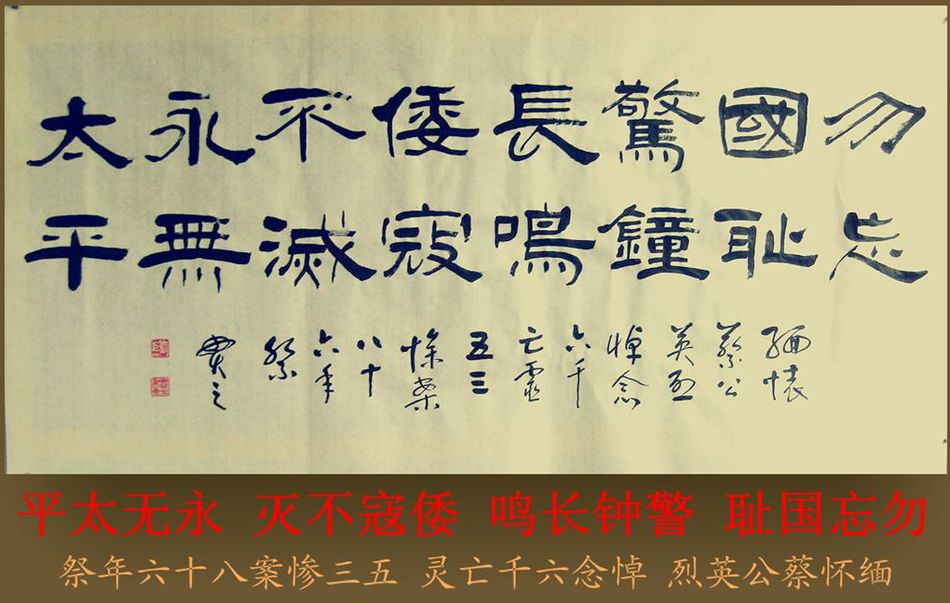 勿忘
國耻
驚鐘
長鳴
倭寇
不滅
永無
太平
缅怀
蔡公
英烈
悼念
六千
亡灵
五三
惨案
八十
六年
祭
勿忘国耻 警钟长鸣 倭寇不灭 永无太平
缅怀蔡公英烈 悼念六千亡灵 五三惨案八十六年祭